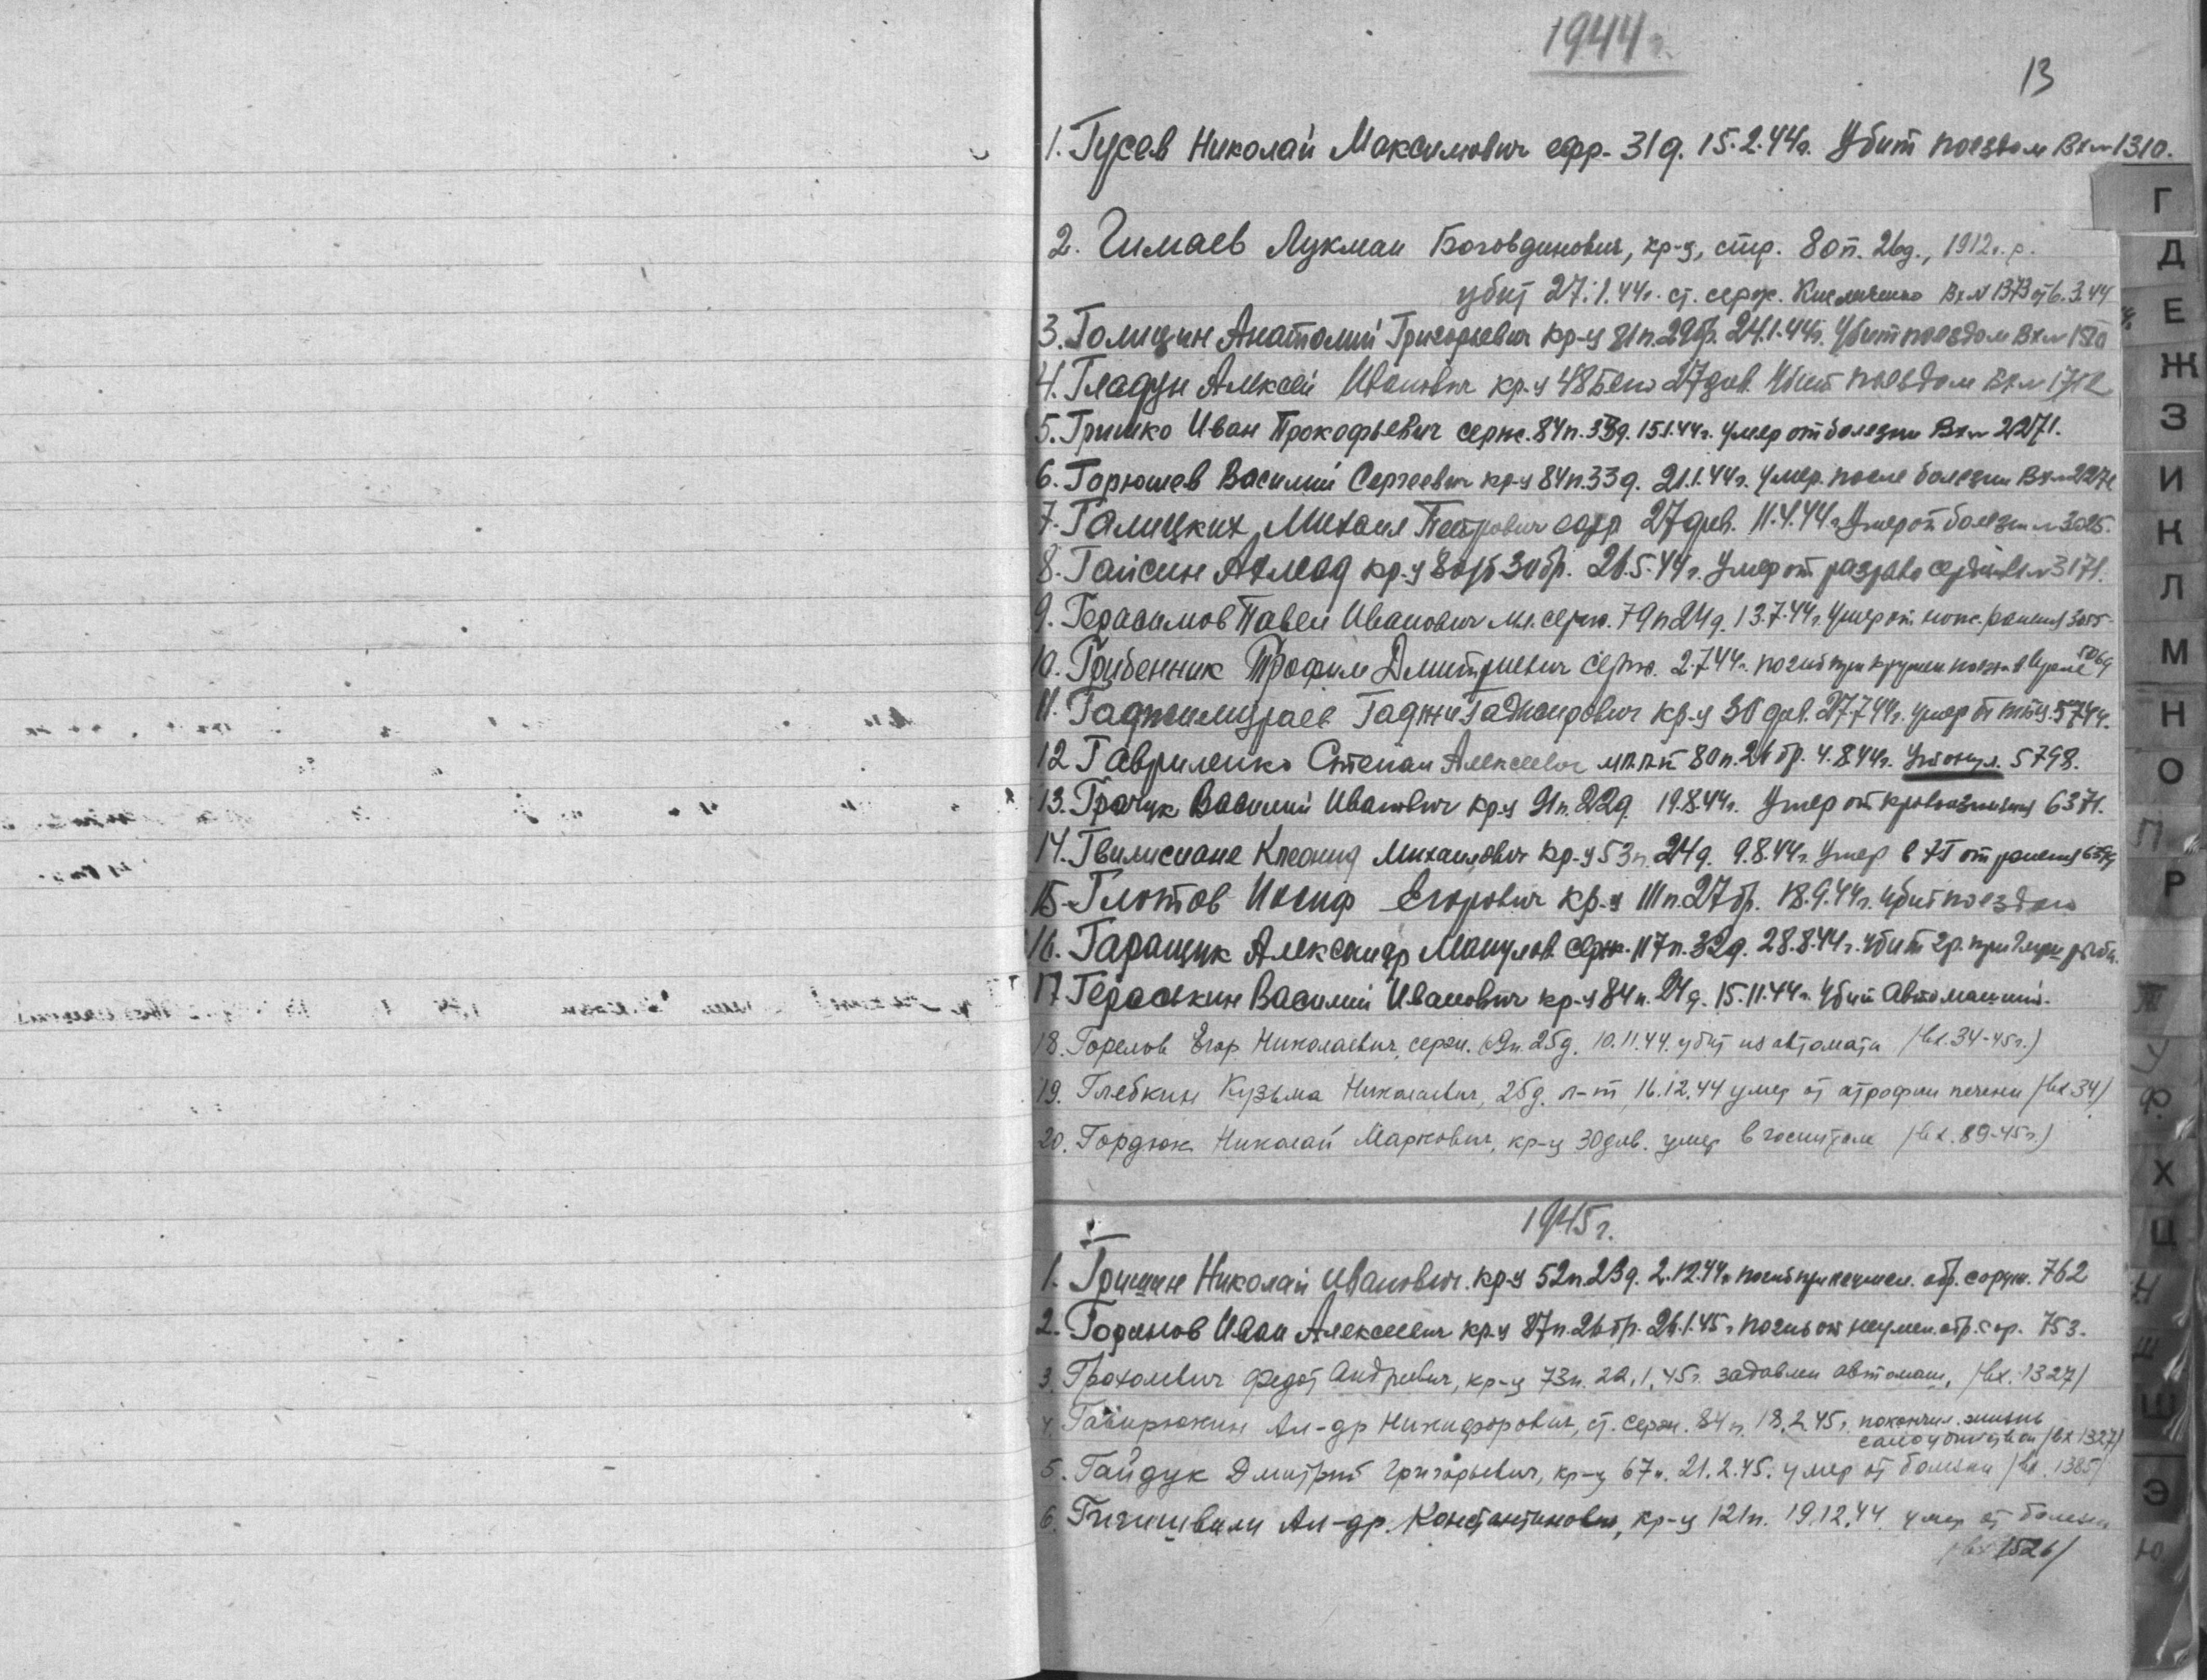 1944 г.
13
1. Гусев Николай Максимович ефр. 31д. 15.2.44г. Убит поездом Вх№1310.
2. Гимаев Лукман Боговдинович, кр-ц, стр. 80п. 26д., 1912г.р.
убит 27.1.44г. ст. серж. Вх№1373 от 6.3.44
3. Голицин Анатолий Григорьевич кр-ц 81п. 29бр. 24.1.44г. Убит поездом Вх№
4. Гладун Алексей Иванович кр-ц 48 27див. Убит поездом Вх№1712
5. Гришко Иван Прокофьевич серж. 84п. 33д. 15.1.44г. Умер от болезни Вх№2271.
6. Горюшев Василий Сергеевич кр-ц 84п. 33д. 21.1.44г. Умер после болезни Вх№2271
7. Галицких Михаил Петрович ефр 27див. 11.4.44г. Умер от болезни №3025.
8. Гайсин Ахмад кр-ц бр. 26.5.44г. Умер от разрыва сердца Вх№3171.
9. Герасимов Павел Иванович мл. серж. 79п 24д. 13.7.44г. Умер от ранения
10. Грибенник Трофим Дмитриевич серж. 2.7.44г. погиб при крушен поезда 5069
11. Гаджимураев Гаджи Гаджидович кр-ц 30 див. 27.7.44г. умер от 5744.
12 Гавриленко Степан Алексеевич 80п. 26бр. 4.8.44г. Утонул. 5798.
13. Грачук Василий Иванович кр-ц 91п. 22д 19.8.44г. Умер от кровоизлияния 6371.
14. Гвилисиане Михаилович кр-ц 53п. 24д. 9.8.44г. Умер в от ранения
15. Глотов Иосиф Егорович кр-ц 111п. 27бр. 18.9.44г. Убит поездом
16. Гаращук Александр серж. 117п. 32д. 28.8.44г. убит гр. при рыбы.
17 Гераськин Василий Иванович кр-ц 84п. 24д. 15.11.44г. Убит Автомашиной.
18. Горелов Егор Николаевич, серж. 69п. 25д. 10.11.44. убит из автомата /вх.34-45г.)
19. Глебкин Кузьма Николаевич, 25д. л-т, 16.12.44 умер от атрофии печени /вх 34)
20. Гордюк Николай Маркович, кр-ц 30див. умер в госпитале /вх. 89-45г.)
1945г.
1. Гришин Николай Иванович. кр-ц 52п. 23д. 2.12.44г погиб при неумел. обр. с оруж. 762
2. Горинов Иван Алексеевич кр-ц 87п. 26бр. 26.1.45г погиб от неумел. обр. с ор. 753.
3. Грохолевич Федот Андреевич, кр-ц 73п. 22.1.45г. задавлен автомаш. /вх. 1327/
4. Ал-др Никифорович, ст. серж. 84п. 18.2.45г. покончил жизнь
самоубийством /вх 1327/
5. Гайдук Дмитрий Григорьевич, кр-ц 67п. 21.2.45. умер от болезни /вх. 1385/
6. Гигишвили Ал-др. Константинович, кр-ц 121п. 19.12.44 умер от болезни
/вх 1526/
Г
Д
Е
Ж
З
И
К
Л
М
Н
О
П
Р
Т
У
Ф
Х
Ц
Ч
Ш
Щ
Э
Ю